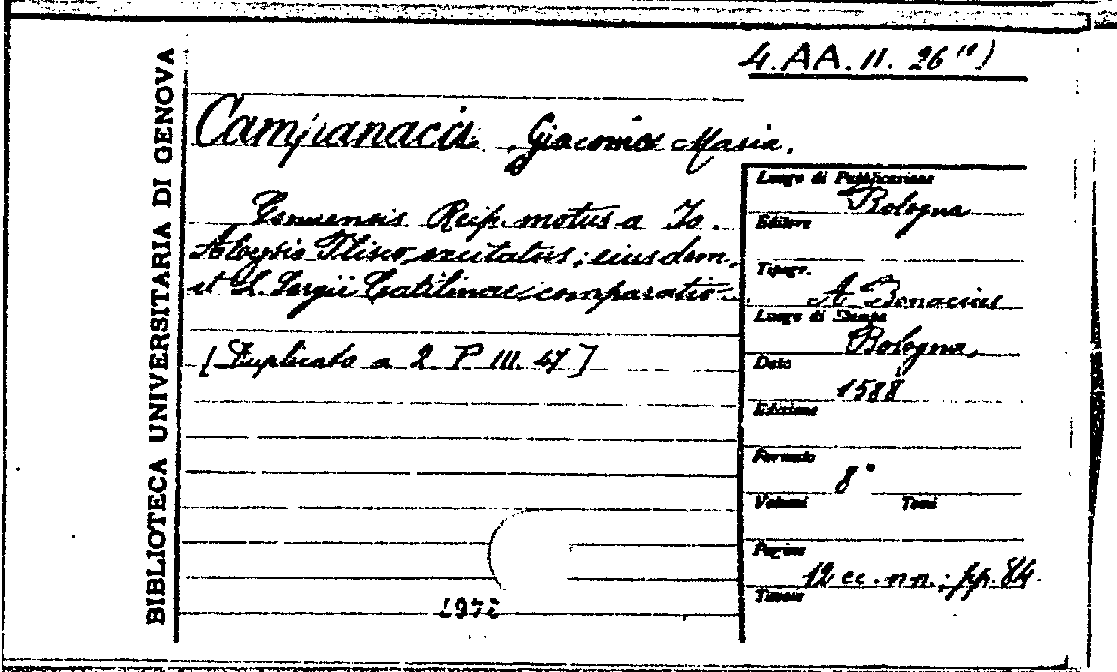 4. AA. II. 26
BIBLIOTECA UNIVERSITARIA DI GENOVA
Campanacci, Giacomo Maria.
Genuensis Reip. motus a Jo.
Aloysio Flisco excitatus; eiusdem.
et L. Sergii Catilinae comparatio.
[Duplicato a 2 P III. 47]
Luogo di Pubblicazione
Bologna
Editore
Tipogr.
A Bonacius
Luogo di Stampa
Bologna.
Data
1588
Edizione
Formato
8°
Volumi Tomi
Pagine
12 cc. nn.; pp. 84.